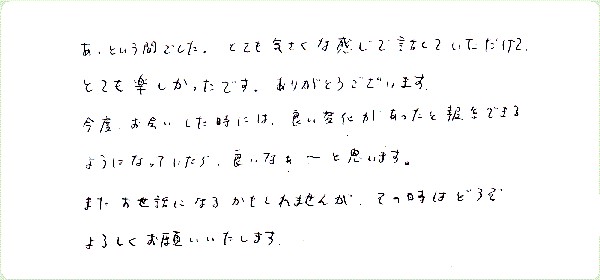 あっという間でした。とても気さくな感じで話をしていただけて、
とても楽しかったです。ありがとうございます。
今度、お会いした時には、良い変化があったと報告できる
ようになっていたら、良いなぁ〜と思います。
またお世話になるかもしれませんが、その時はどうぞ
よろしくお願いいたします。